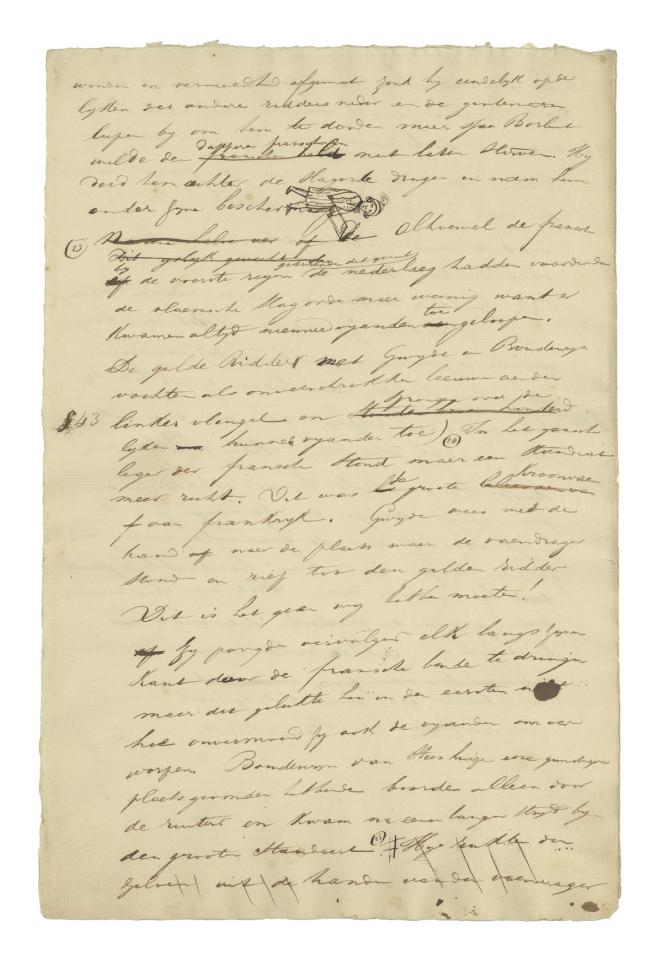 wonden en vermoeidheid afgemat zonk hy eindelyk op de
lyken der andere ridders neder en de gentenaren
liepen by om hem te dooden maer Jan Borluut
dapperen franschman
wilde de franschen held niet laten sterven. Hy
deed hem achter de slagorde dragen en nam hem
onder zyne bescherming
(23) of de Alhoewel de fransche
Dit gelyk gevecht
by de voorste regen de nederlaeg hadden vorderden
de vlaemsche slagorde maer weinig want er
toe
kwamen altyd nieuwe vyanden aengeloopen.
De gulde Ridder met Gwyde en Boudewyn
vochten als onverschrikken leeuwen aen den
sprongen over de
§43 linker vleugel en
lyken hunne vyanden toe) (24) In het gansch
leger der fransche stond maer een standaert
de Kroonvaen
meer recht. Dit was groote
+ van frankryk. Gwyde wees met de
hand naer de plaets waer de vaendrager
stond en riep tot den gulden ridder
Dit is het geen wy hebben moeten!
Zy poogden vervolgens elk langs zynen
Kant door de fransche bende te dringen
maer dit gelukte hen in den eersten niet
hoe onvermoeid zy ook de vyanden om ver
worpen. Boudewyn van Steenhuize eene gunstigere
plaets gevonden hebbende boorde alleen door
de ruiters en Kwam na eenen langen stryd by
den grooten Standaert. (25) # Hy rukte den
uit de handen van den vaendrager